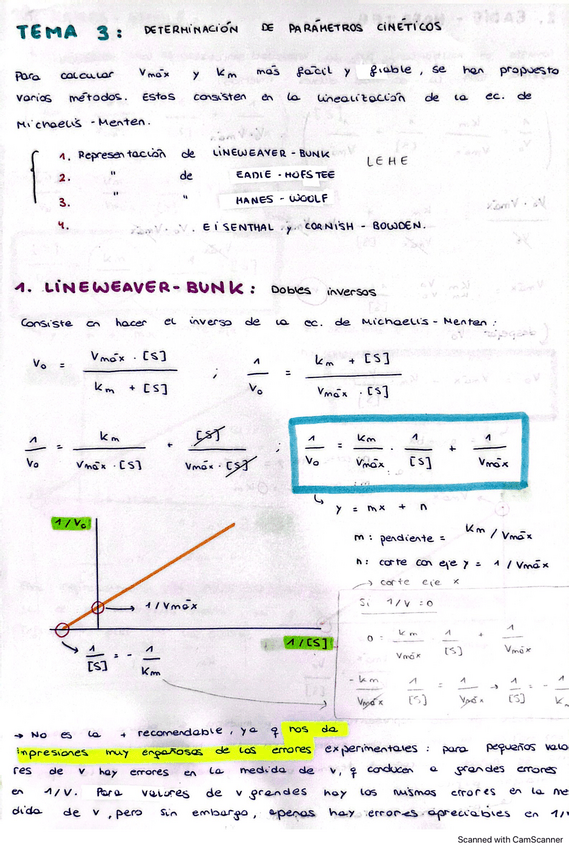 TEMA 3: DETERMINACIÓN DE PARÁMETROS CINÉTICOS
Para calcular Vmáx y Km más fácil y fiable, se han propuesto
varios métodos. Estos consisten en la linealización de la ec. de
Michaelis-Menten.
1. Representación de LINEWEAVER-BUNK
LEHE
2. " de EADIE-HOFSTEE
3. " " HANES-WOOLF
4. EISENTHAL y CORNISH-BOWDEN.
1. LINEWEAVER-BUNK: Dobles inversos
Consiste en hacer el inverso de la ec. de Michaelis-Menten:
V₀ = Vmáx · [S] / Km + [S] ; 1 / V₀ = Km + [S] / Vmáx · [S]
1 / V₀ = Km / Vmáx · [S] + [S] / Vmáx · [S] ; 1 / V₀ = Km / Vmáx · 1 / [S] + 1 / Vmáx
y = mx + n
m: pendiente = Km / Vmáx
n: corte con eje y = 1 / Vmáx
→ corte eje x
1/V₀
Si 1/V = 0
→ 1/Vmáx
0 = Km / Vmáx 1 / [S] + 1 / Vmáx
1/[S]
1 / [S] = - 1 / Km
-Km / Vmáx 1 / [S] = 1 / Vmáx → 1 / [S] = - 1 / K
→ No es la + recomendable, ya q nos da
impresiones muy engañosas de los errores experimentales: para pequeños valo
res de v hay errores en la medida de v, q conducen a grandes errores
en 1/V. Para valores de v grandes hay los mismos errores en la me
dida de v, pero sin embargo, apenas hay errores apreciables en 1/v
Scanned with CamScanner